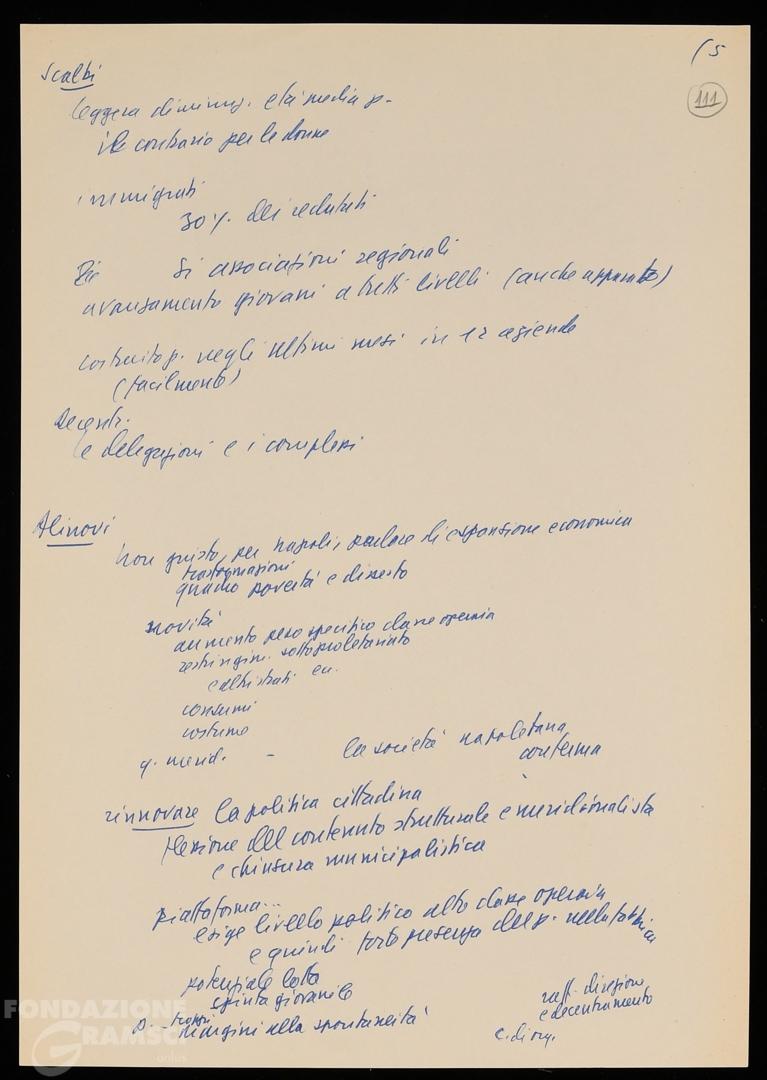 15
111
Scalbi
leggera diminuz. età media p.
il contrario per le donne
immigrati
30% dei reclutati
Sì associazioni regionali
avanzamento giovani a tutti livelli (anche apparato)
costruito p. negli ultimi mesi in 12 aziende
(facilmente)
Decentr.
le delegazioni e i complessi
Alinovi
non giusto, per Napoli, parlare di espansione economica
trasformazioni
quadro povertà e dissesto
novità
aumento peso specifico classe operaia
restringim. sottoproletariato
e altri strati
consumi
costume
q. merid. - la società napoletana
conferma
rinnovare la politica cittadina
flessione del contenuto strutturale e meridionalista
e chiusura municipalistica
piattaforma...
esige livello politico alto classe operaia
e quindi forte presenza del p. nella fabbrica
potenziale lotta
spinta giovanile
margini alla spontaneità
raff. direzione
e decentramento
c. di org.
FONDAZIONE
GRAMSCI
onlus